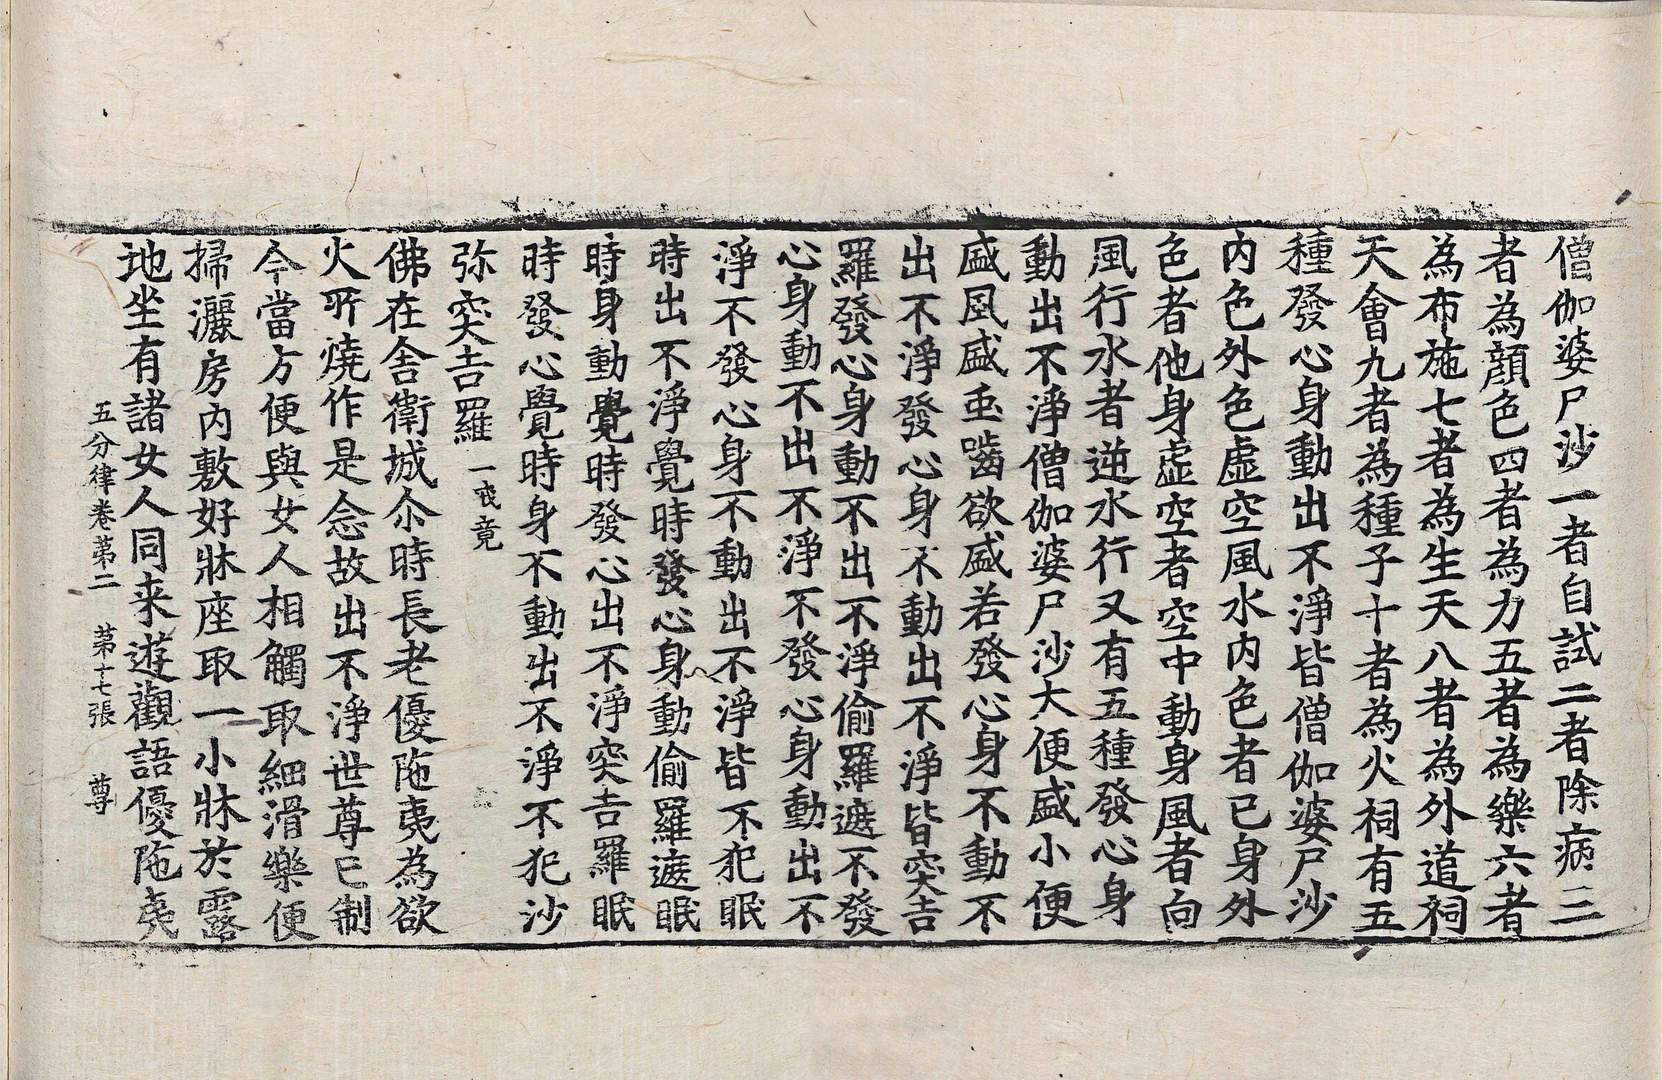 僧伽婆尸沙一者自試二者除病三
者為顏色四者為力五者為樂六者
為布施七者為生天八者為外道祠
天會九者為種子十者為火祠有五
種發心身動出不淨皆僧伽婆尸沙
內色外色虛空風水內色者已身外
色者他身虛空者空中動身風者向
風行水者逆水行又有五種發心身
動出不淨僧伽婆尸沙大便盛小便
盛風盛虫嚙欲盛若發心身不動不
出不淨發心身不動出不淨皆突吉
羅發心身動不出不淨偷羅遮不發
心身動不出不淨不發心身動出不
淨不發心身不動出不淨皆不犯眠
時出不淨覺時發心身動偷羅遮眠
時身動覺時發心出不淨突吉羅眠
時發心覺時身不動出不淨不犯沙
弥突吉羅 一戒竟
佛在舍衛城尒時長老優陁夷為欲
火所燒作是念故出不淨世尊已制
今當方便與女人相觸取細滑樂便
掃灑房內敷好牀座取一小牀於露
地坐有諸女人同来遊觀語優陁夷
五分律卷苐二 苐十七張 尊